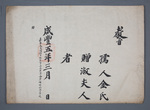 敎旨
孺人金氏
贈淑夫人
者
咸豐五年三月 日